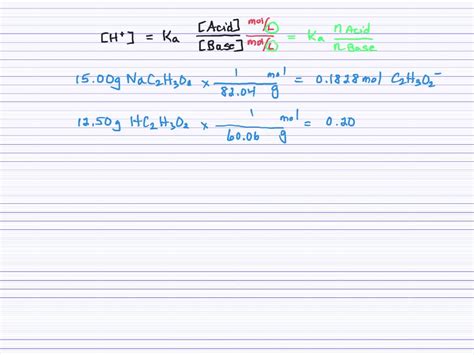 [H⁺] = Ka [Acid] mol/L / [Base] mol/L = Ka n Acid / n Base
15.00g NaC₂H₃O₂ × 1 mol / 82.04 g = 0.1828 mol C₂H₃O₂⁻
12.50g HC₂H₃O₂ × 1 mol / 60.06 g = 0.20